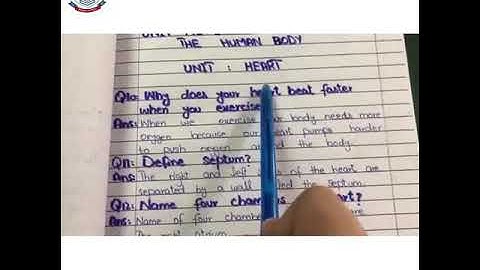 THE HUMAN BODY
UNIT : HEART
Q10: Why does your heart beat faster
when you exercise
Ans: When we exercise our body needs more
oxygen because our heart pumps harder
to push oxygen around the body.
Q11: Define septum?
Ans: The right and left of the heart are
separated by a wall the septum.
Q12: Name four chambers heart?
Ans: Name of four are
The right atrium